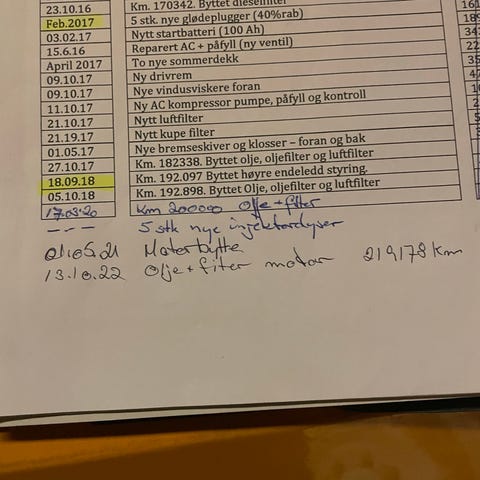 23.10.16 Km. 170342. Byttet dieselfilter 161
Feb.2017 5 stk. nye glødeplugger (40%rab) 189
03.02.17 Nytt startbatteri (100 Ah) 34
15.6.16 Reparert AC + påfyll (ny ventil) 22
April 2017 To nye sommerdekk 35
09.10.17 Ny drivrem
09.10.17 Nye vindusviskere foran
11.10.17 Ny AC kompressor pumpe, påfyll og kontroll
21.10.17 Nytt luftfilter
21.19.17 Nytt kupe filter
01.05.17 Nye bremseskiver og klosser – foran og bak
27.10.17 Km. 182338. Byttet olje, oljefilter og luftfilter
18.09.18 Km. 192.097 Byttet høyre endeledd styring.
05.10.18 Km. 192.898. Byttet Olje, oljefilter og luftfilter
17.03.20 Km 200000 Olje + filter
--- 5 stk nye injektordyser
01.05.21 Motorbytte
13.10.22 Olje + filter motor 219178 Km